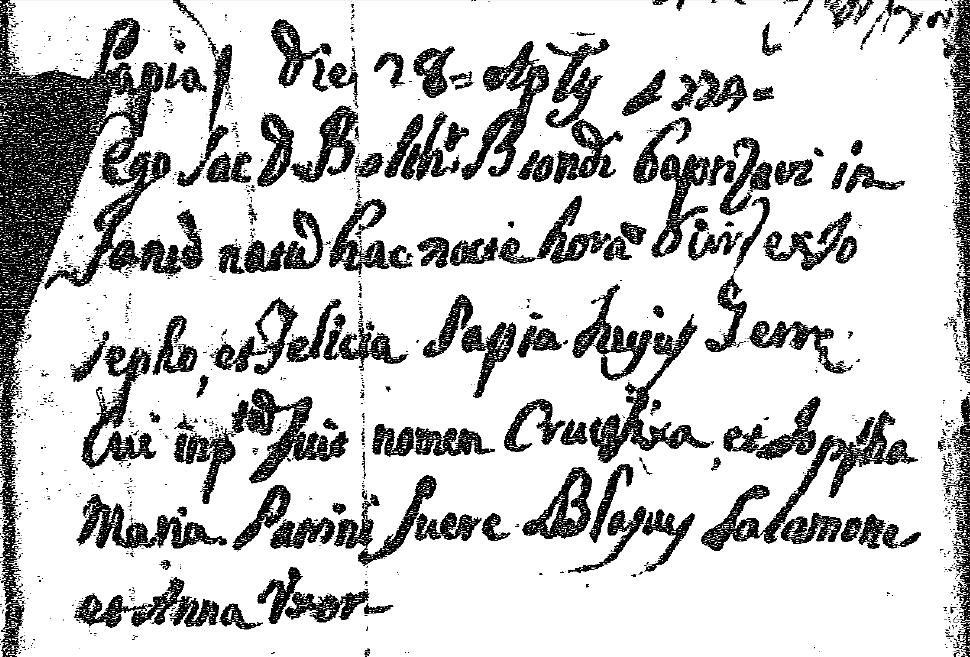 Papia die 28 = Aplis 1774 =
Ego Sac D. Barth.s Biondi Baptizavi in
fantē natū hac nocte hora
sepho, et Felicia Papia hujus Terre
Cui imp.tū fuit nomen et
Maria. Parini fuere Blasius Salamone
et Anna Uxor